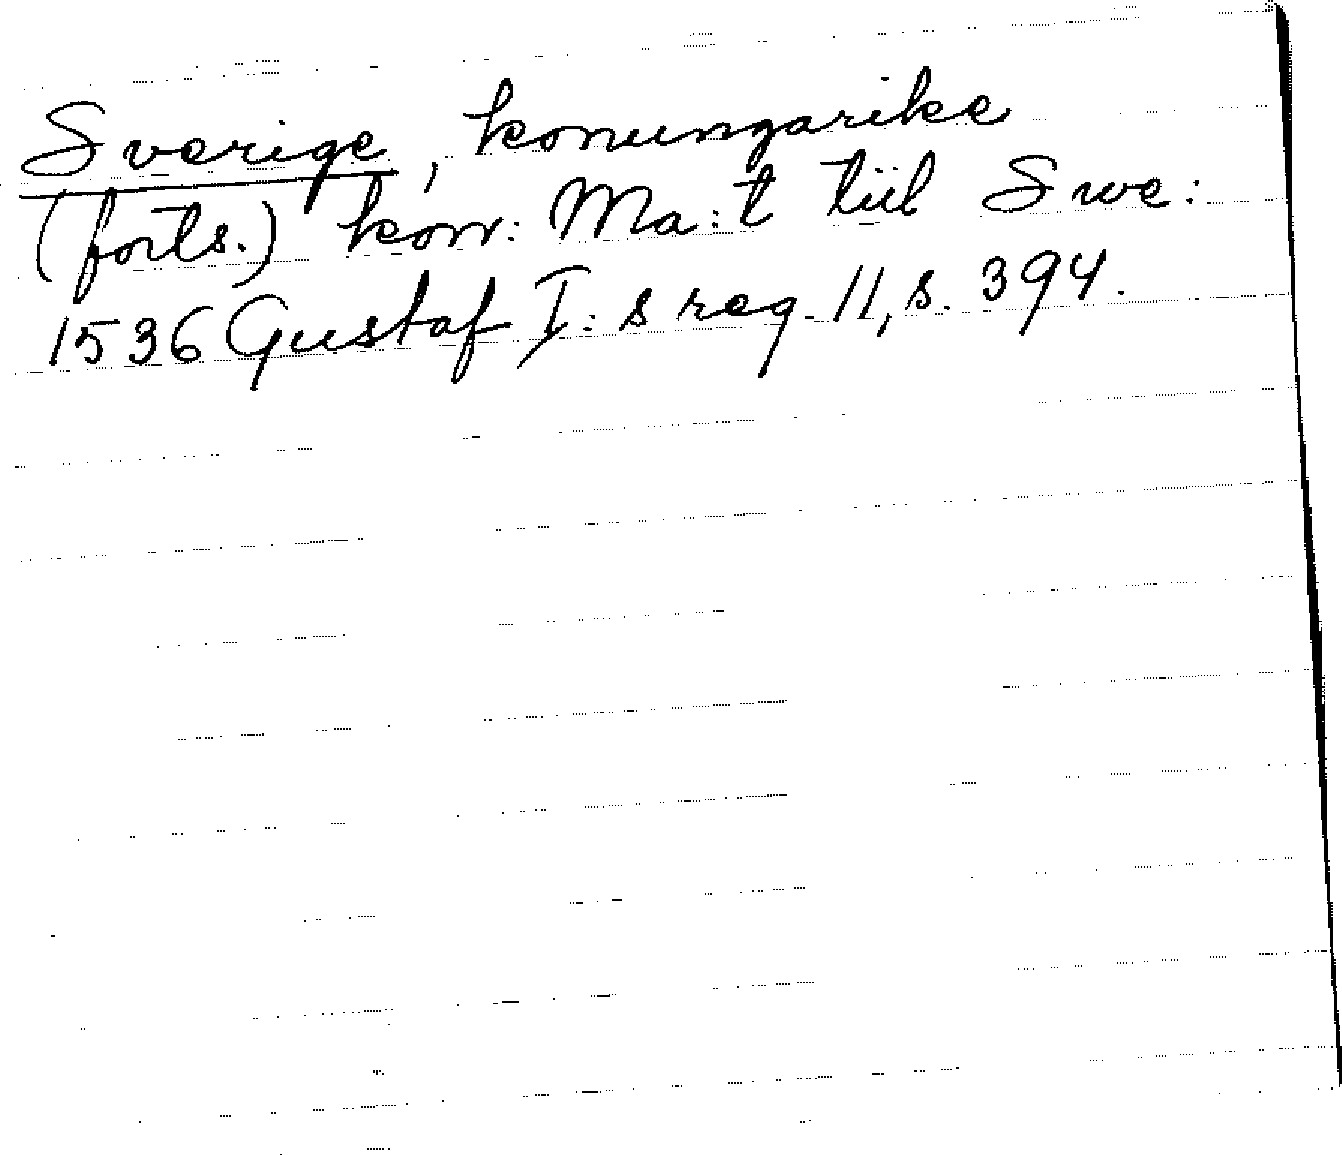 Sverige, konungarike
(forts.) konr: Ma:t tiil Swe:
1536 Gustaf I:s reg. 11, s. 394.